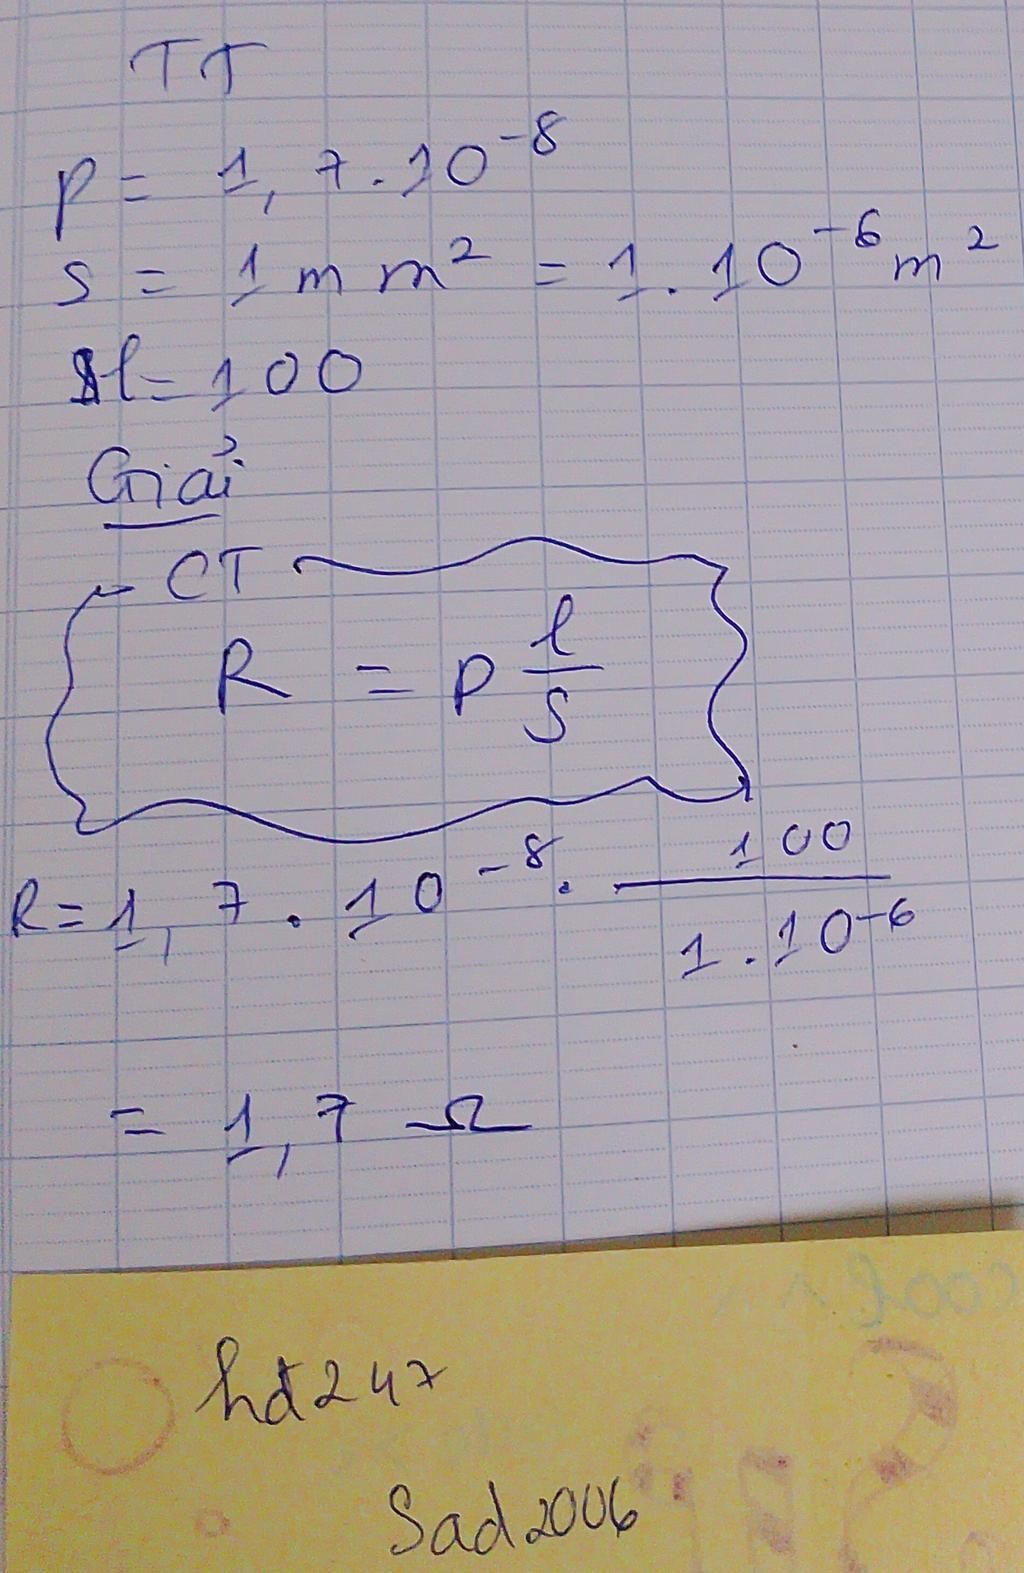 TT
p = 1,7.10⁻⁸
s = 1mm² = 1.10⁻⁶m²
l = 100
Giải
CT
R = p l/S
R = 1,7.10⁻⁸. 100/1.10⁻⁶
= 1,7 Ω
hdt247
Sad2006